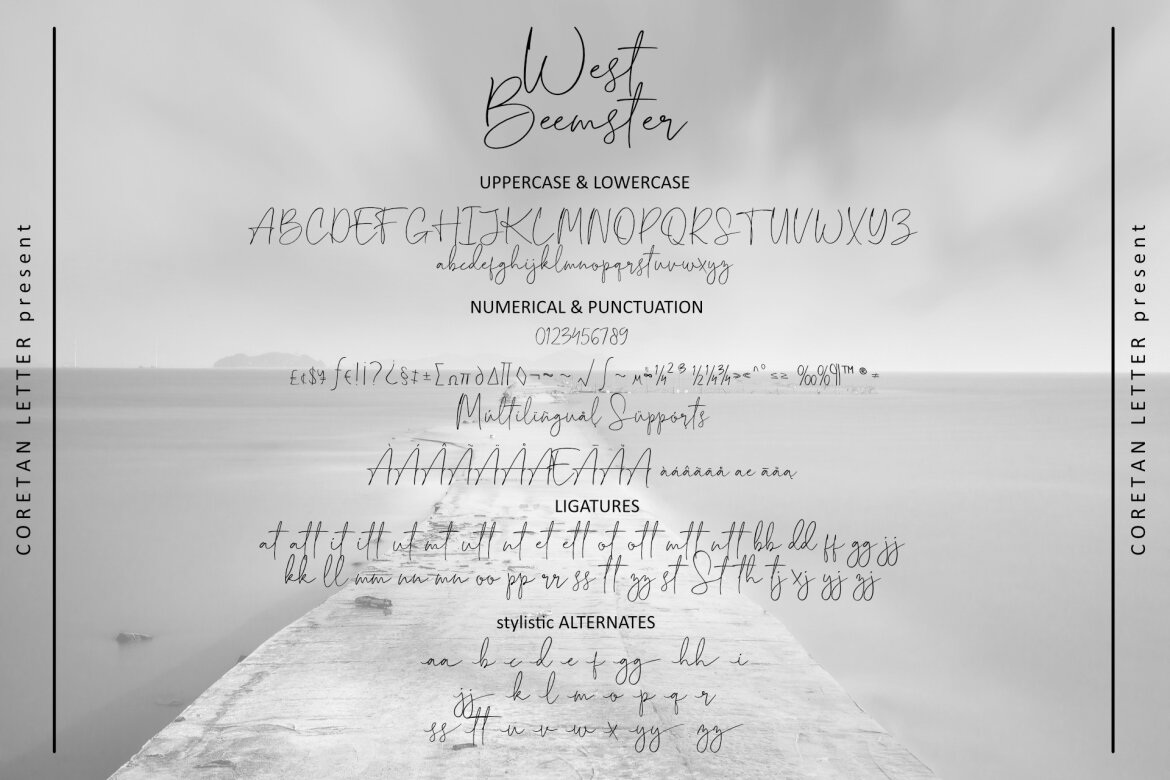 CORETAN LETTER present
West
Beemster
UPPERCASE & LOWERCASE
ABCDEFGHIJKLMNOPQRSTUVWXYZ
abcdefghijklmnopqrstuvwxyz
NUMERICAL & PUNCTUATION
0123456789
£¢$¥ƒ€!¡?¿§‡±∑∩π∂∆∏◊¬~~√∫~µ
Multilingual Supports
ÀÁÂÃÄÅÆĀ àáâãäå æ
LIGATURES
at att it itt ut mt utt nt et ett ot ott mtt ntt bb dd ff gg jj
kk ll mm nn mn oo pp rr ss tt yy st St th tj xj yj zj
stylistic ALTERNATES
aa b c d e f gg hh i
jj k l m o p q r
ss tt u v w x yy zz
CORETAN LETTER present